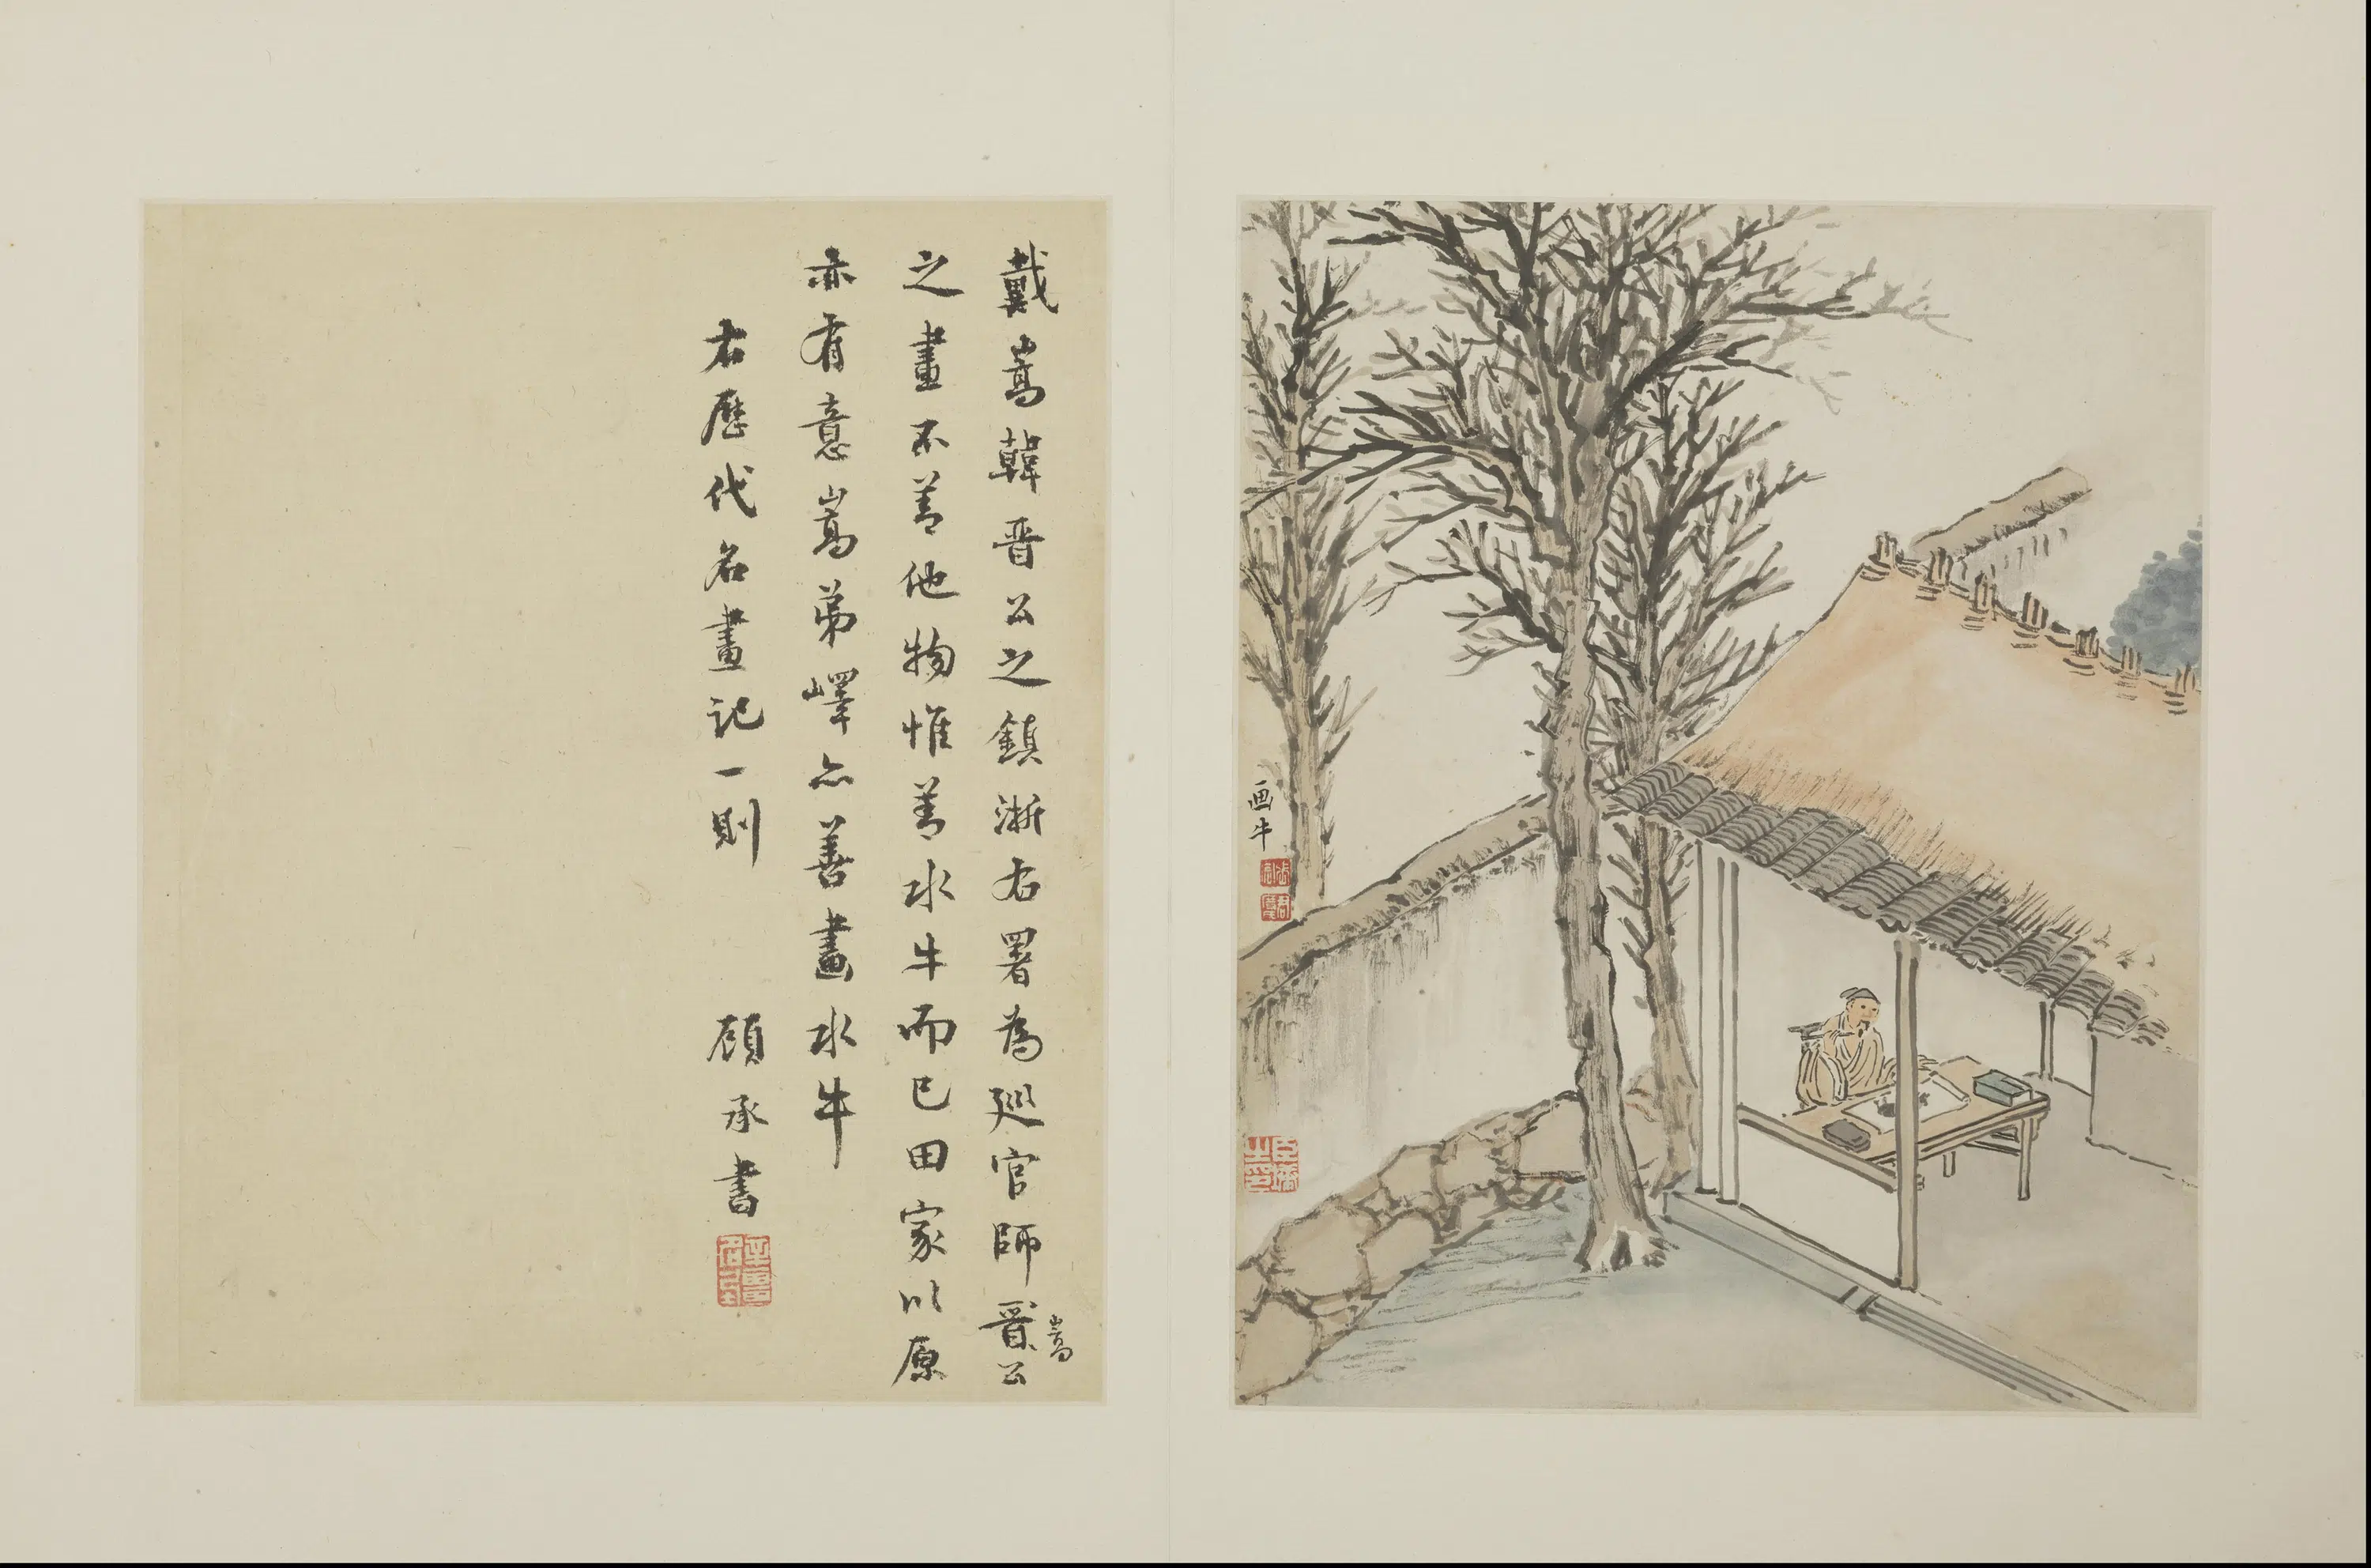 戴嵩韓晋公之鎮浙右署為廵官師晉公
嵩
之畫不善他物惟善水牛而已田家以原
亦有意嵩弟嶧亦善畫水牛
右歷代名畫記一則
顧承書
画牛